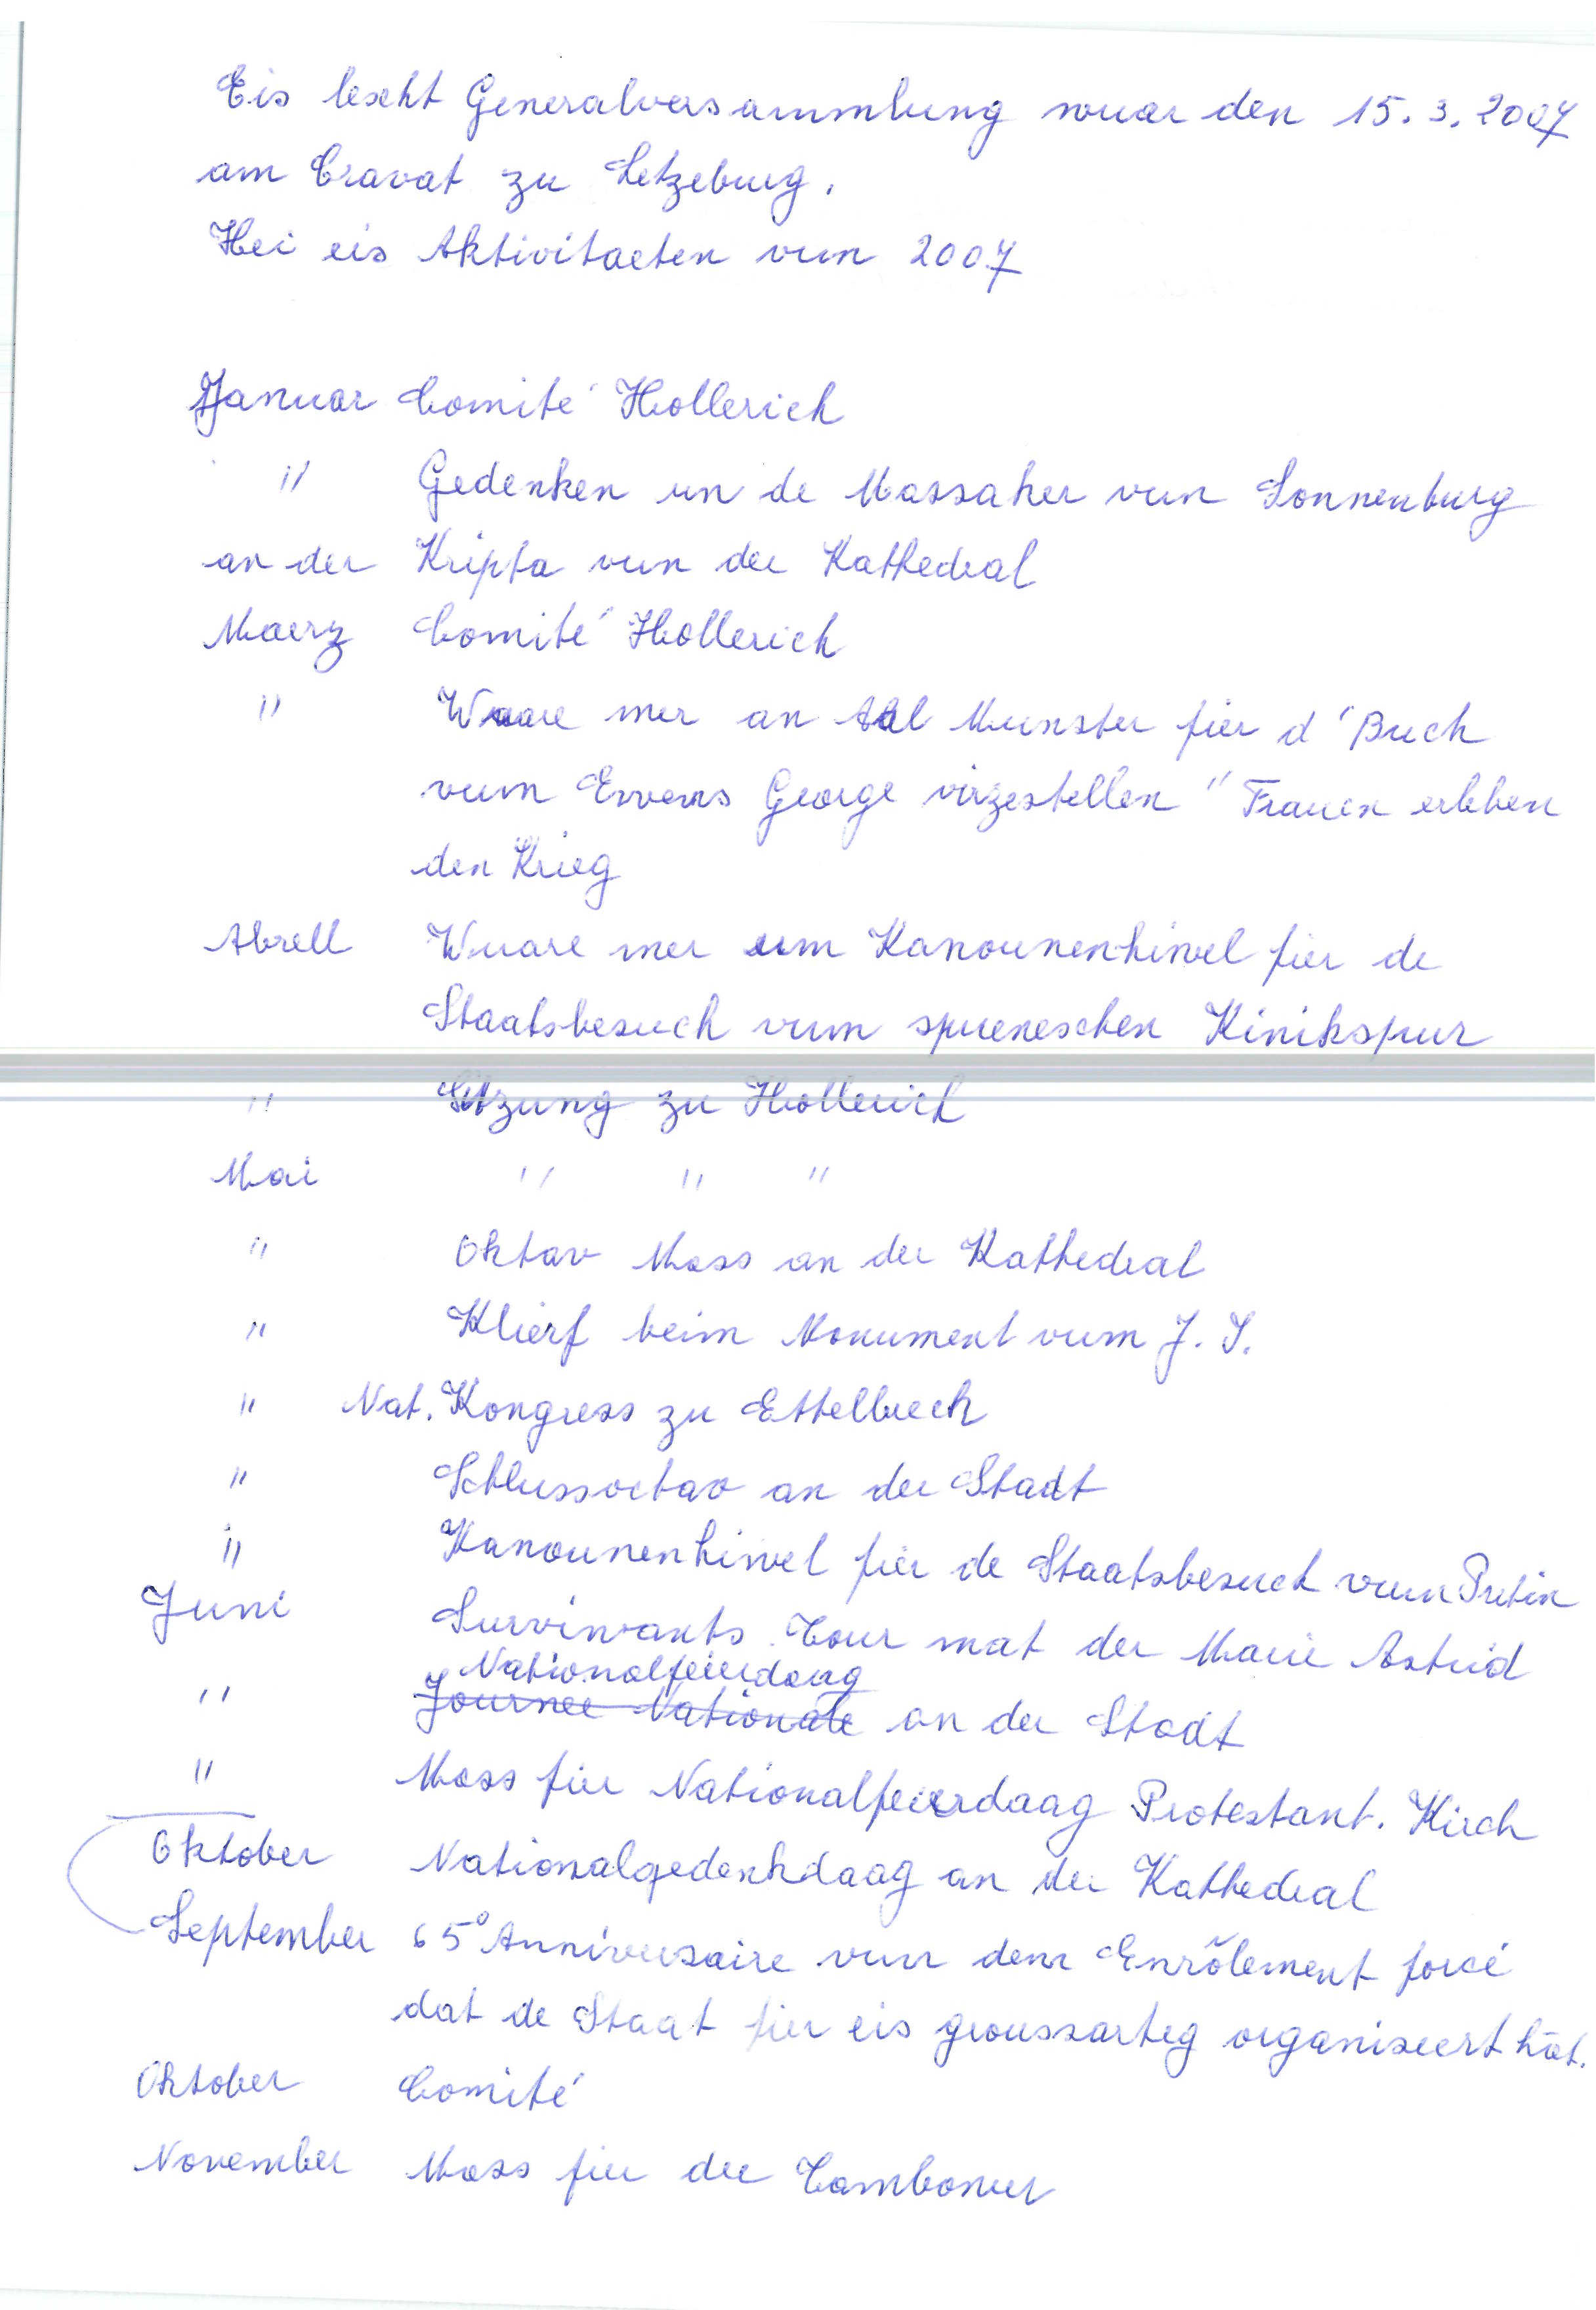 Eis lescht Generalversammlung wuar den 15. 3. 2007
am Cravat zu Letzeburg.
Hei eis Aktivitaeten vun 2007
Januar Comité Hollerich
" Gedenken un de Massaker vun Sonnenburg
an der Kripta vun der Kathedral
Maerz Comité Hollerich
" Waare mer an Abl Munster fier d'Buch
vum Evvens George virzestellen "Frauen erleben
den Krieg
Abrell Wuare mer um Kanounenhiwel fier de
Staatsbesuch vum spueneschen Kinikspur
" Sitzung zu Hollerich
Mai " " "
" Oktav Mass an der Kathedral
" Klierf beim Monument vum J. S.
" Nat. Kongress zu Ettelbreck
" Schlussoctav an der Stadt
" Kanounenhiwel fier de Staatsbesuch vum Putin
Juni Survivants Tour mat der Marie Astrid
Nationalfeierdaag
" Journee Nationale an der Stadt
" Mass fir Nationalfeierdaag Protestant. Kirch
Oktober Nationalgedenkdaag an der Kathedral
September 65° Anniversaire vun dem Enrôlement forcé
dat de Staat fier eis groussarteg organiseert hat.
Oktober Comité
November Mass fir der Tambower